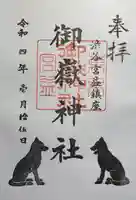 奉拝
渋谷宮益鎮座
御嶽神社
令和四年壱月拾伍日